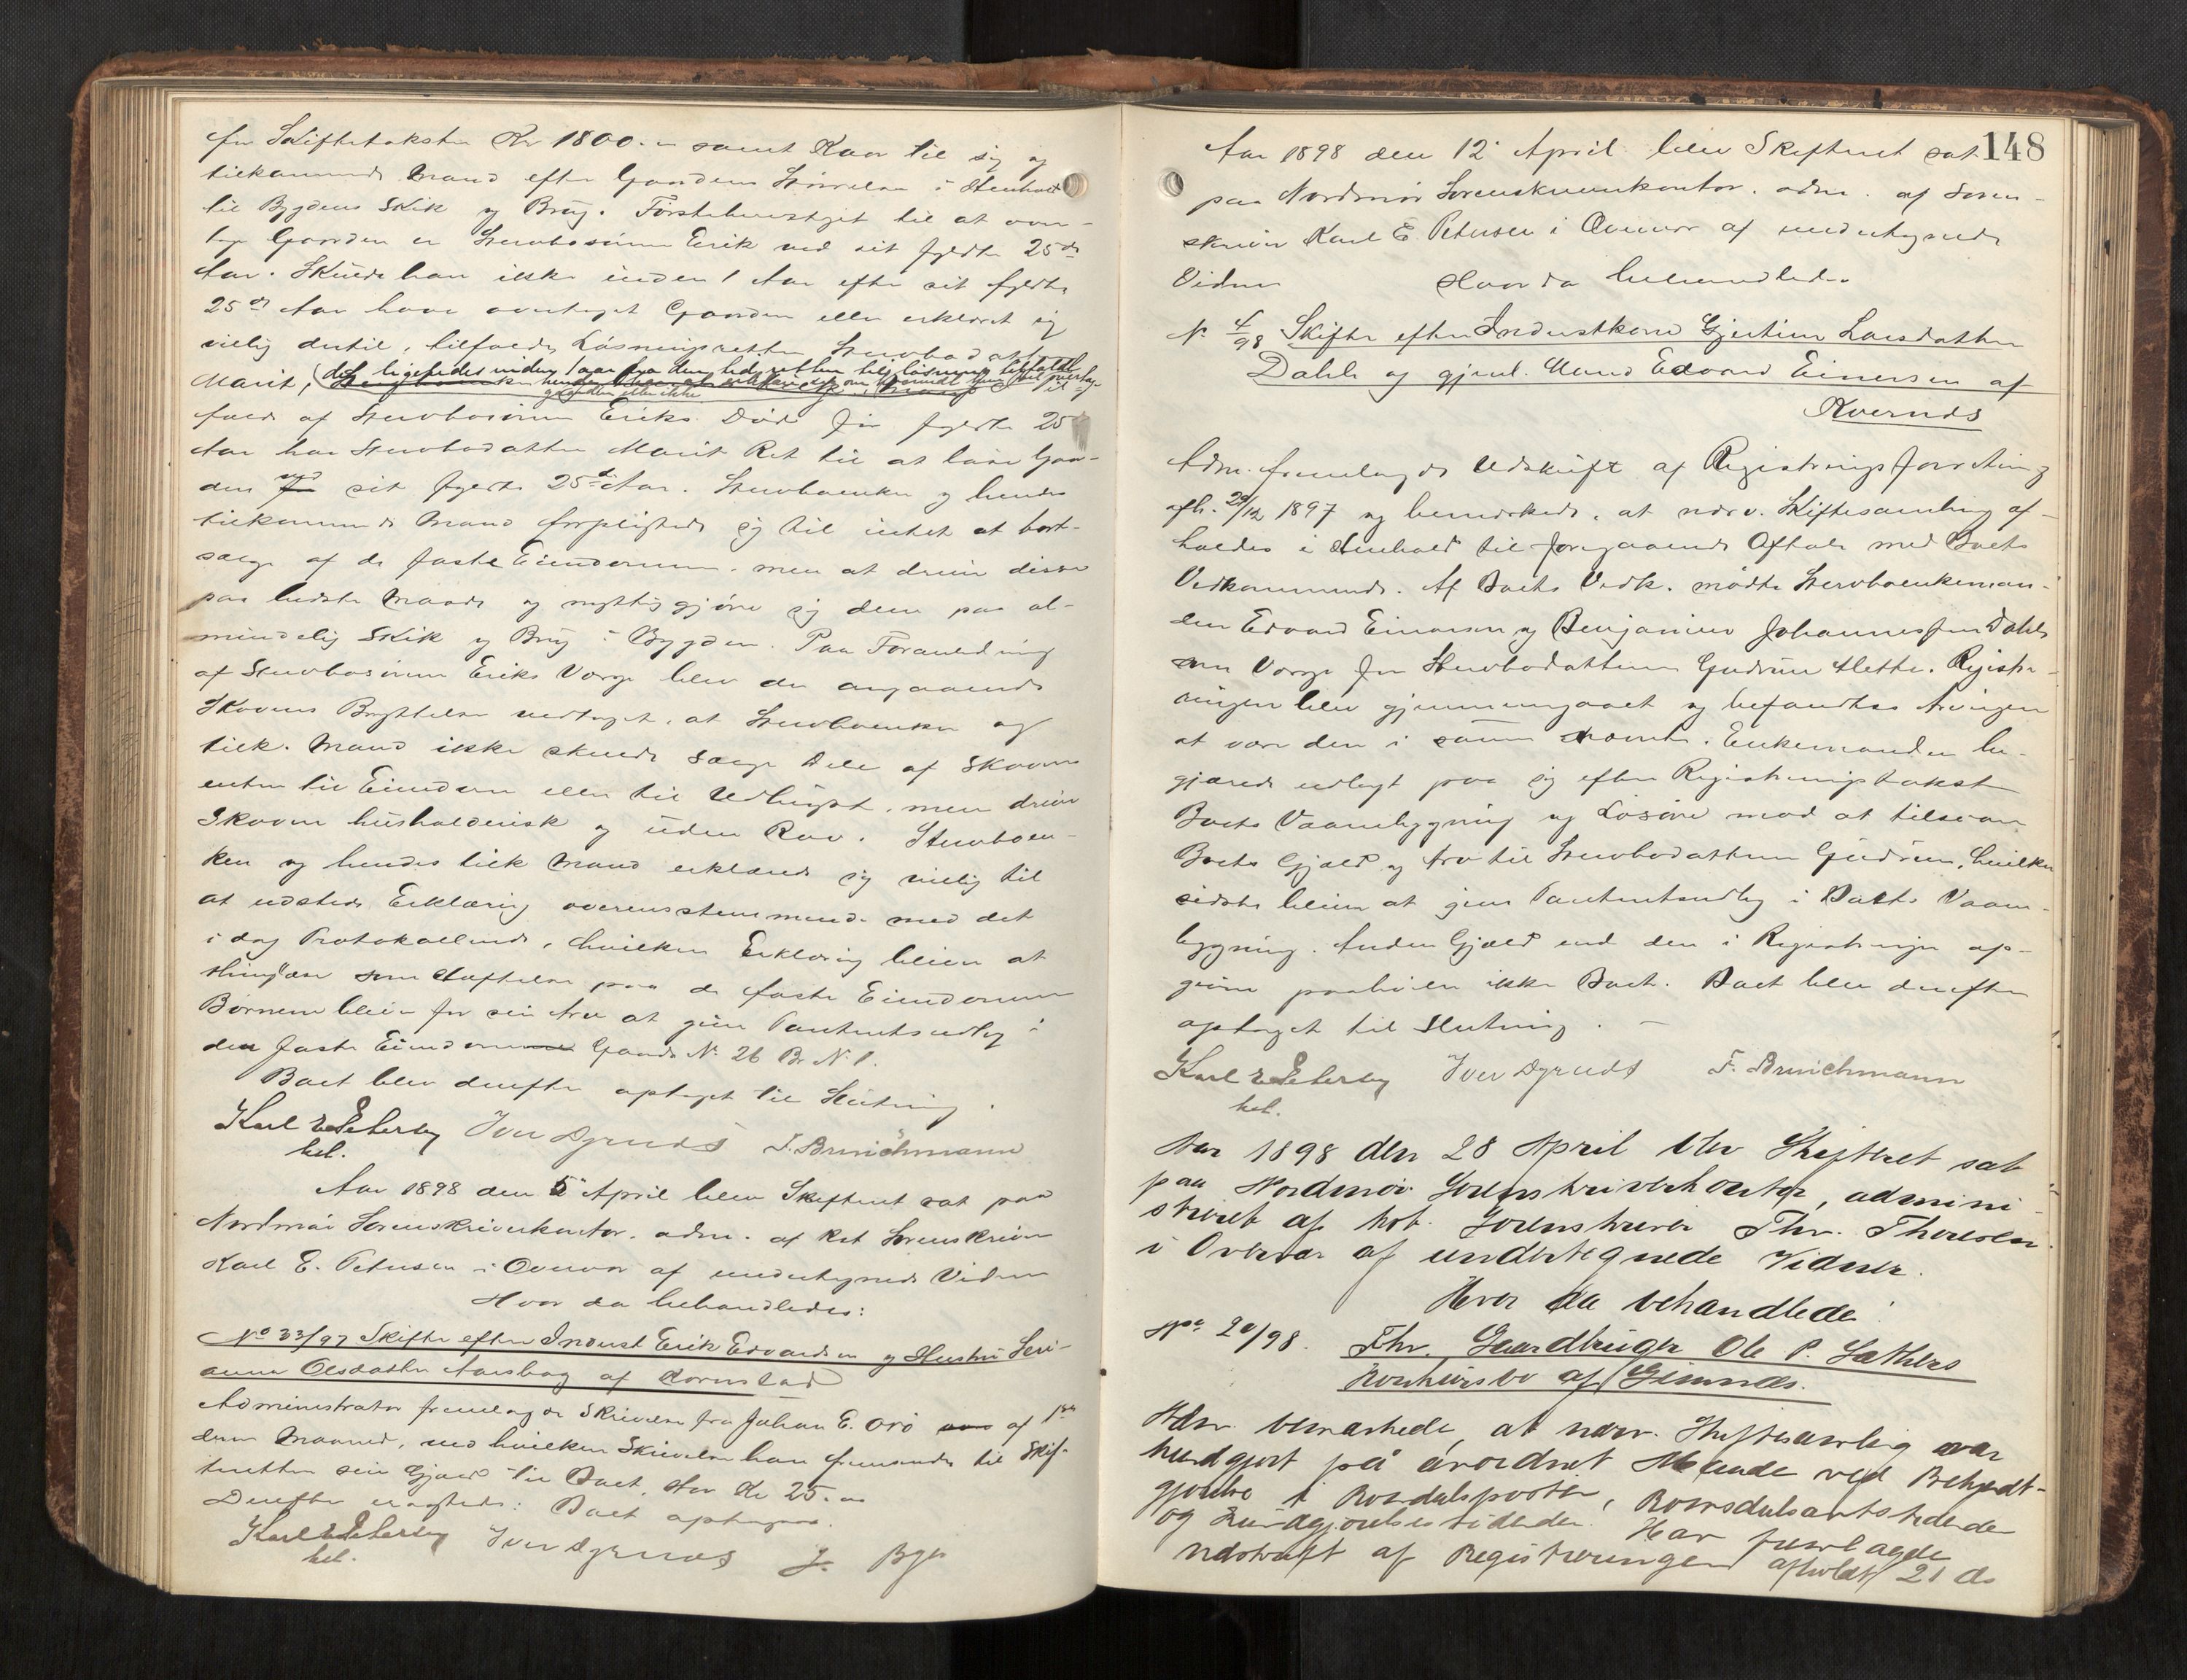 for Skiftetaksten Kr 1800.- samt Kaar til sig og
tilkommende Mand efter Gaardens Størrelse i Henhold
til Bygdens Skik og Brug. Førsteberettiget til at over-
tage Gaarden er Stervbosønnen Erik ved sit fyldte 25de
Aar. Skulde han ikke inden 1 Aar efter sit fyldte
25de Aar have overtaget Gaarden eller erklæret sig
villig dertil, tilfalder Løsningsretten Stervbodatteren
Marit, det ligeledes inden 1 aar fra den tid retten til løsning tilfaldt
hende at erklære sig om hvorvidt hun vil overtage
gaarden eller ikke
fald af Stervbosønnen Eriks Død før fyldte 25
Aar har Stervbodatteren Marit Ret til at løse Gaar-
den ved sit fyldte 25de Aar. Stervboenken og hendes
tilkommende Mand forpligtede sig til intet at bort-
sælge af de faste Eiendomme, men at drive disse
paa bedste Maade og nyttiggjøre sig dem paa al-
mindelig Skik og Brug i Bygden. Paa Foranledning
af Stervbosønnen Eriks Værge blev der angaaende
Skovens Benyttelse vedtaget, at Stervboenken og
tilk. Mand ikke skulde sælge Dele af Skoven
enten til Eiendom eller til Udhugst, men drive
Skoven husholderisk og uden Rov. Stervboen-
ken og hendes tilk Mand erklærede sig villig til
at udstede Erklæring overensstemmende med det
i dag Protokollerede, hvilken Erklæring bliver at
thinglæse som Heftelse paa de faste Eiendomme
Børnene bliver for sin Arv at give Panteretsudlæg i
den faste Eiendom Gaards No. 26 Br. No. 1.
Boet blev derefter optaget til Slutning.
Karl E Petersen Iver Dyrnæs F. Brinchmann
kst.
Aar 1898 den 5 April blev Skifteret sat paa
Nordmør Sorenskriverkontor, adm. af kst Sorenskriver
Karl E. Petersen i Overvær af undertegnede Vidner
Hvor da behandledes:
No 33/97 Skifte efter Inderst Erik Edvardsen og Hustru Seri-
anna Olsdatter Aarsbog af Kornstad
Administrator fremlagde Skrivelse fra Johan E. Orø af 1ste
denne Maaned, ved hvilken Skrivelse han fremsendte til Skif-
teretten sin Gjæld til Boet, stor Kr 25.-
Derefter eragtedes: Boet optages.
Karl E Petersen Iver Dyrnæs J. Bye
kst.
148
Aar 1898 den 12 April blev Skifteret sat
paa Nordmør Sorenskriverkontor, adm. af Soren-
skriver Karl E. Petersen i Overvær af undertegnede
Vidner Hvor da behandledes
No. 4/98 Skifte efter Inderstkone Gjertine Larsdatter
Dahle og gjenl. Mand Edvard Einersen af
Kvernes
Adm. fremlagde Udskrift af Registreringsforretning
afh. 29/12 1897 og bemærkede, at nærv. Skiftesamling af-
holdes i Henhold til foregaaende Aftale med Boets
Vedkommende. Af Boets Vedk. mødte Stervboenkeman-
den Edvard Einersen og Benjamin Johannessen Dahle
som Værge for Stervbodatteren Gudrun Mette. Registre-
ringen blev gjennemgaaet og befandtes Arvingen
at være den i samme nævnte. Enkemanden be-
gjærede udlagt paa sig efter Registreringstakst
Boets Vaanebygning og Løsøre mod at tilsvare
Boets Gjæld og Arv til Stervbodatteren Gudrun, hvilken
sidste bliver at give Panteretsudlæg i Boets Vaane-
bygning. Anden Gjæld end den i Registreringen op-
givne paahviler ikke Boet. Boet blev derefter
optaget til Slutning. —
Karl E Petersen Iver Dyrnæs F. Brinchmann
kst.
Aar 1898 den 28 April blev Skifteret sat
paa Nordmør Sorenskriverkontor, admini-
streret af kst. Sorenskriver Thv. Thoresen
i Overvær af undertegnede Vidner.
Hvor da behandlede:
No 20/98. Fhv. Gaardbruger Ole P. Sæthers
Konkursbo af Gimnæs.
Adm. bemærkede, at nærv. Skiftesamling var
kundgjort på anordnet Maade ved Bekjendt-
gjørelse i Romsdalsposten, Romsdals amtstidende
og Kundgjørelsestidende. Han fremlagde
udskrift af Registreringen afholdt 21 ds